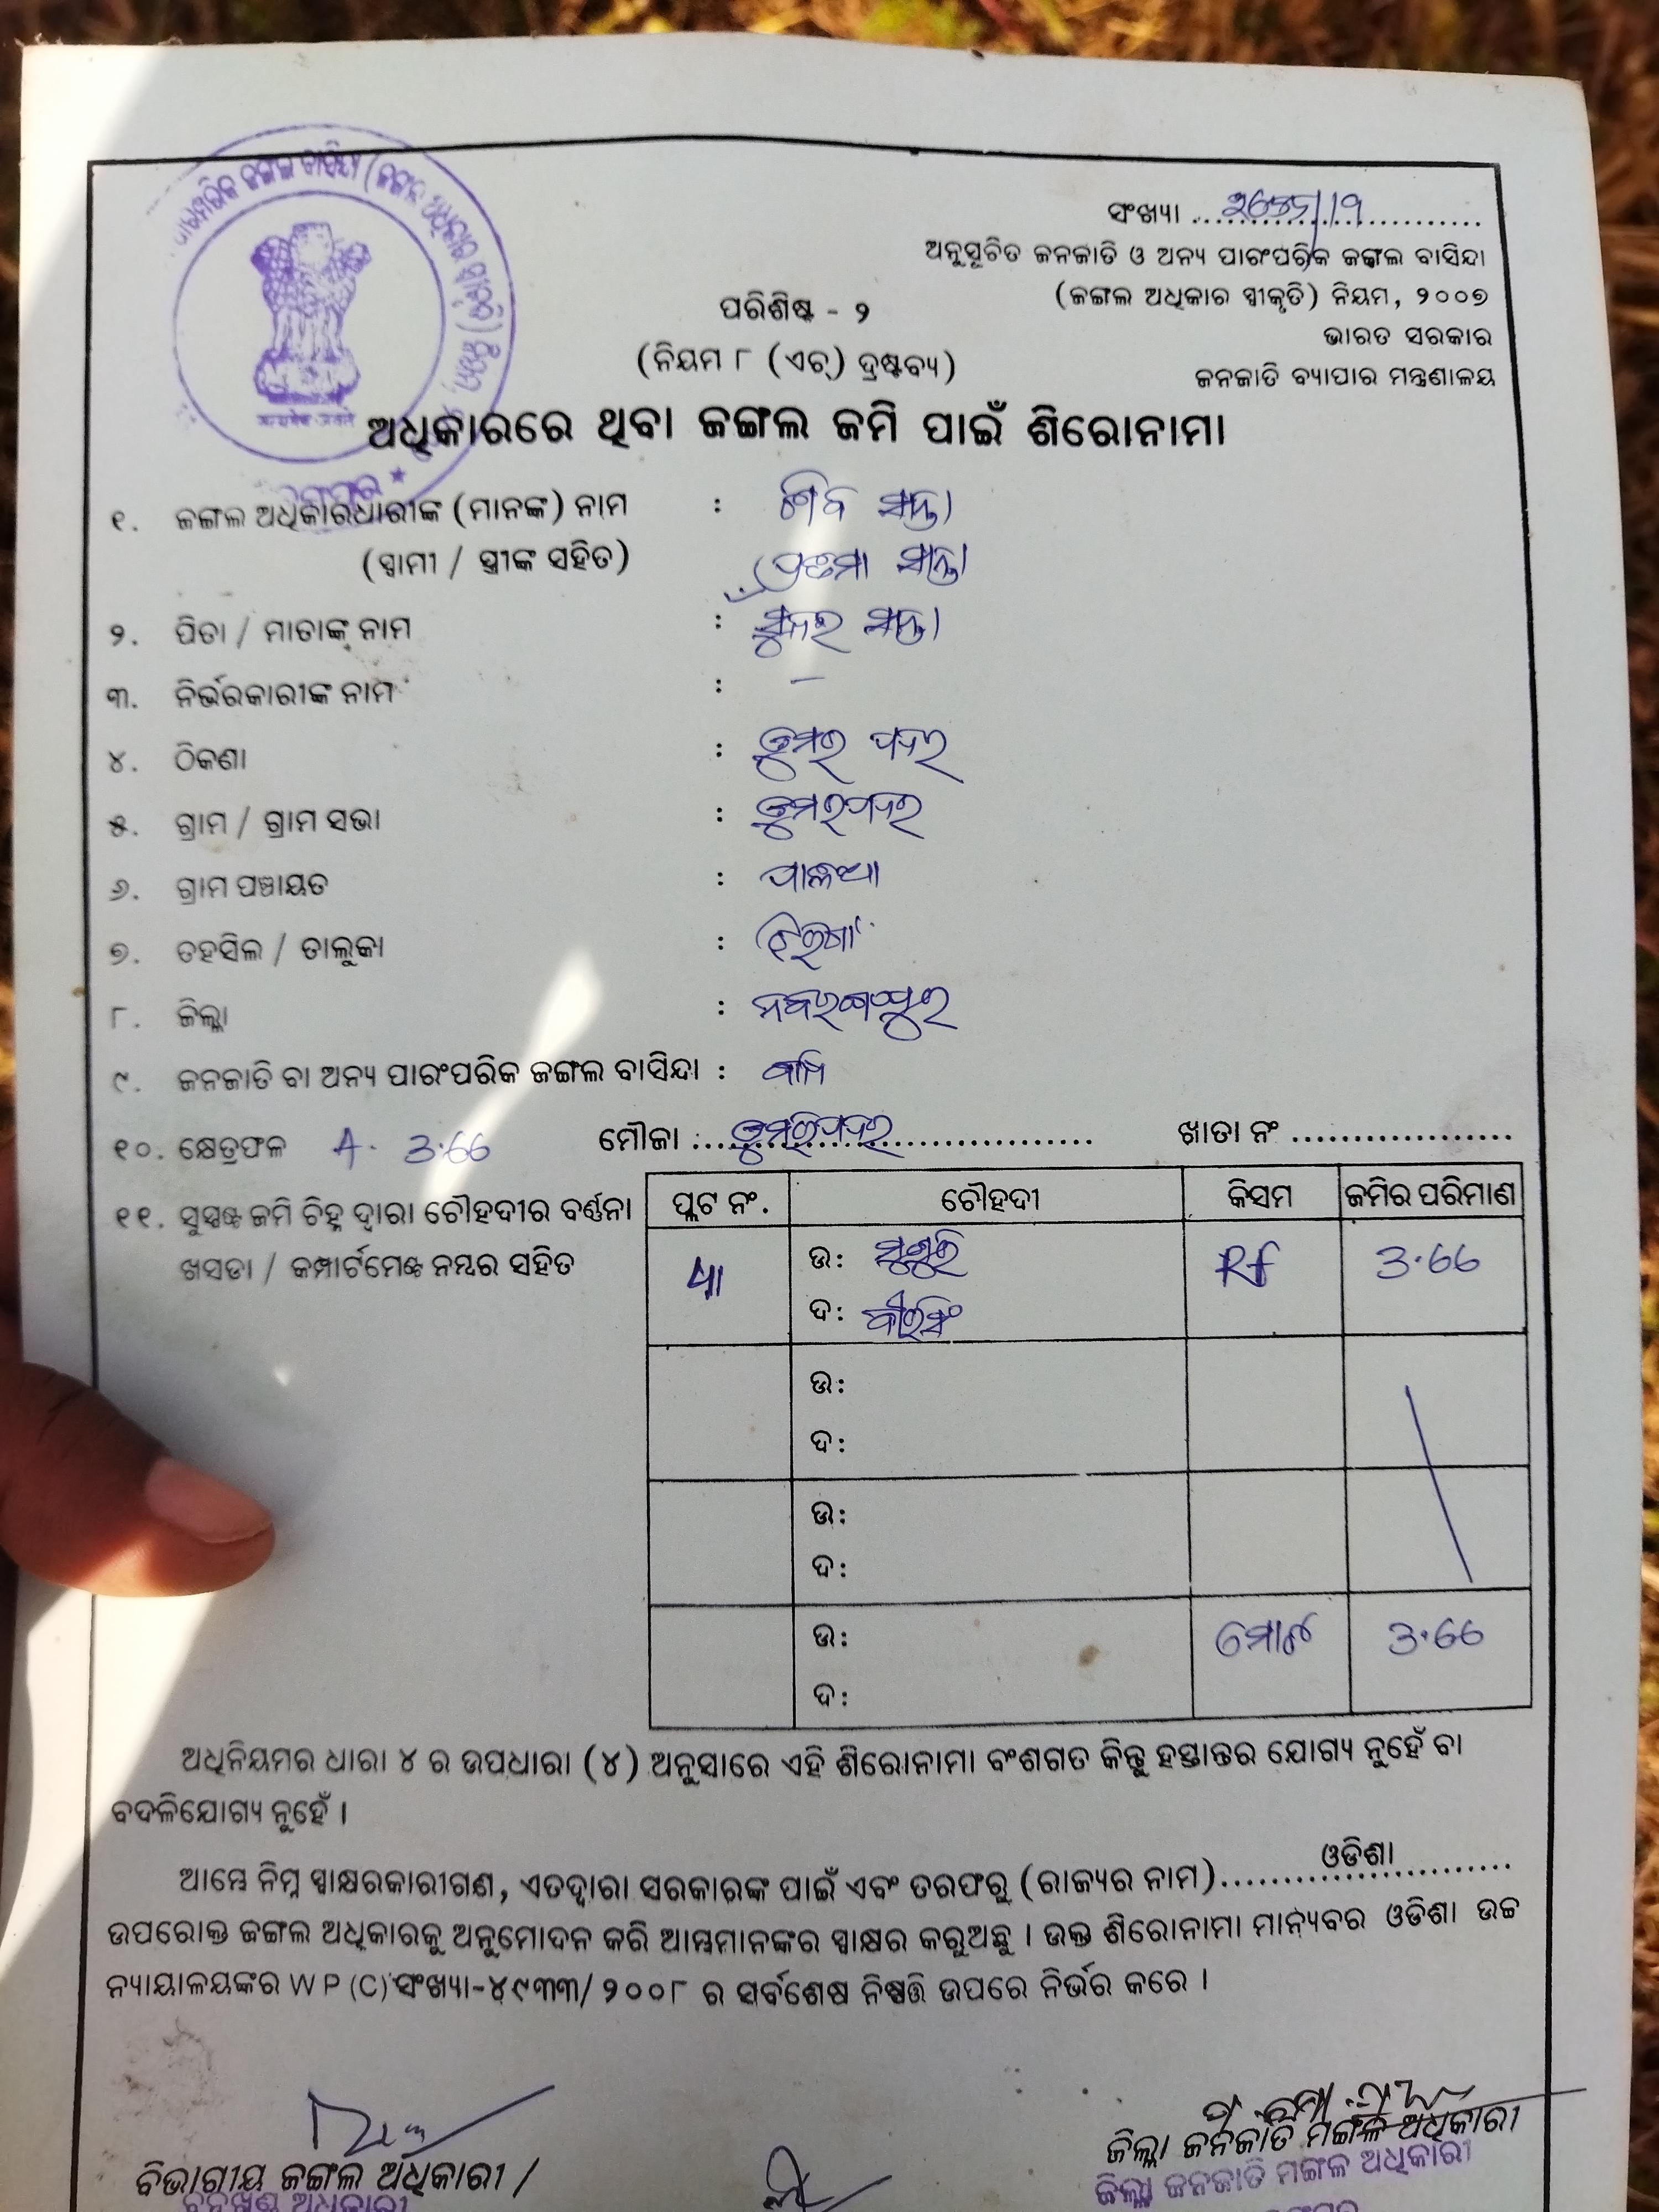 ସଂଖ୍ୟା
ଅନୁସୂଚିତ ଜନଜାତି ଓ ଅନ୍ୟ ପାରଂପରିକ ଜଙ୍ଗଲ ବାସିନ୍ଦା
(ଜଙ୍ଗଲ ଅଧିକାର ସ୍ୱୀକୃତି) ନିୟମ, ୨୦୦୭
ଭାରତ ସରକାର
ଜନଜାତି ବ୍ୟାପାର ମନ୍ତ୍ରଣାଳୟ
ପରିଶିଷ୍ଟ - ୨
(ନିୟମ ୮ (ଏଚ୍) ଦ୍ରଷ୍ଟବ୍ୟ)
ଅଧିକାରରେ ଥିବା ଜଙ୍ଗଲ ଜମି ପାଇଁ ଶିରୋନାମା
୧. ଜଙ୍ଗଲ ଅଧିକାରଧାରୀଙ୍କ (ମାନଙ୍କ) ନାମ : ଶିବ ସାନ୍ତା
(ସ୍ୱାମୀ / ସ୍ତ୍ରୀଙ୍କ ସହିତ) ସାନ୍ତା
୨. ପିତା / ମାତାଙ୍କ ନାମ : ସୁନ୍ଦର ସାନ୍ତା
୩. ନିର୍ଭରକାରୀଙ୍କ ନାମ : –
୪. ଠିକଣା : ଡୁମର ପଦର
୫. ଗ୍ରାମ / ଗ୍ରାମ ସଭା : ଡୁମରପଦର
୬. ଗ୍ରାମ ପଞ୍ଚାୟତ :
୭. ତହସିଲ / ତାଲୁକା :
୮. ଜିଲ୍ଲା : ନବରଙ୍ଗପୁର
୯. ଜନଜାତି ବା ଅନ୍ୟ ପାରଂପରିକ ଜଙ୍ଗଲ ବାସିନ୍ଦା :
୧୦. କ୍ଷେତ୍ରଫଳ A. 3.66 ମୌଜା : ଡୁମରିପଦର ଖାତା ନଂ
୧୧. ସୁସ୍ପଷ୍ଟ ଜମି ଚିହ୍ନ ଦ୍ୱାରା ଚୌହଦୀର ବର୍ଣ୍ଣନା
ଖସଡା / କମ୍ପାର୍ଟମେଣ୍ଟ ନମ୍ବର ସହିତ
ପ୍ଲଟ ନଂ. ଚୌହଦୀ କିସମ ଜମିର ପରିମାଣ
ଉ: Rf 3.66
ଦ:
ଉ:
ଦ:
ଉ:
ଦ:
ଉ: ମୋଟ 3.66
ଦ:
ଅଧିନିୟମର ଧାରା ୪ ର ଉପଧାରା (୪) ଅନୁସାରେ ଏହି ଶିରୋନାମା ବଂଶଗତ କିନ୍ତୁ ହସ୍ତାନ୍ତର ଯୋଗ୍ୟ ନୁହେଁ ବା
ବଦଳିଯୋଗ୍ୟ ନୁହେଁ ।
ଆମ୍ଭେ ନିମ୍ନ ସ୍ୱାକ୍ଷରକାରୀଗଣ, ଏତଦ୍ୱାରା ସରକାରଙ୍କ ପାଇଁ ଏବଂ ତରଫରୁ (ରାଜ୍ୟର ନାମ) ଓଡିଶା
ଉପରୋକ୍ତ ଜଙ୍ଗଲ ଅଧିକାରକୁ ଅନୁମୋଦନ କରି ଆମ୍ଭମାନଙ୍କର ସ୍ୱାକ୍ଷର କରୁଅଛୁ । ଉକ୍ତ ଶିରୋନାମା ମାନ୍ୟବର ଓଡିଶା ଉଚ୍ଚ
ନ୍ୟାୟାଳୟଙ୍କର W P (C) ସଂଖ୍ୟା-୪୯୩୩/ ୨୦୦୮ ର ସର୍ବଶେଷ ନିଷ୍ପତ୍ତି ଉପରେ ନିର୍ଭର କରେ ।
ବିଭାଗୀୟ ଜଙ୍ଗଲ ଅଧିକାରୀ / ଜିଲ୍ଲା ଜନଜାତି ମଙ୍ଗଳ ଅଧିକାରୀ
ବନଖଣ୍ଡ ଅଧିକାରୀ ଜିଲ୍ଲା ଜନଜାତି ମଙ୍ଗଳ ଅଧିକାରୀ